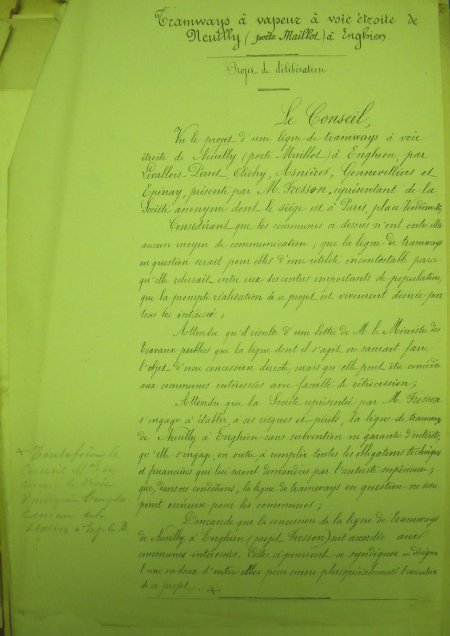 Tramways à vapeur à voie étroite de
Neuilly (porte Maillot) à Enghien
Projet de délibération
Le Conseil,
Vu le projet d'une ligne de tramways à voie
étroite de Neuilly (porte Maillot) à Enghien, par
Levallois-Perret, Clichy, Asnières, Gennevilliers et
Epinay, présenté par M. Fresson, représentant de la
Société anonyme dont le siège est à Paris, place Vendôme,
Considérant que les communes ci dessus n'ont entre elles
aucun moyen de communication; que la ligne de tramways
en question serait pour elles d'une utilité incontestable parce
qu'elle relierait entre eux des centres importants de population,
que la prompte réalisation de ce projet est vivement désirée par
tous les intéressés;
Attendu qu'il résulte d'une lettre de M. le Ministre des
travaux publics que la ligne dont il s'agit ne saurait faire
l'objet d'une concession directe, mais qu'elle peut être concédée
aux communes intéressées avec faculté de rétrocession;
Attendu que la Société représentée par M. Fresson
s'engage à établir, à ses risques et périls, la ligne de tramways
de Neuilly à Enghien sans subvention ni garantie d'intérêt,
qu'elle s'engage, en outre, à remplir toutes les obligations techniques
et financières qui lui seront demandées par l'autorité supérieure;
que, dans ces conditions, la ligne de tramways en question ne sera
point onéreuse pour les communes;
Demande que la concession de la ligne de tramways
de Neuilly à Enghien (projet Fresson) soit accordée aux
communes intéressées. Celles-ci pourront se syndiquer ou désigner
l'une ou deux d'entre elles pour
l'exécution
de ce projet. +
+ Toutefois le
Conseil